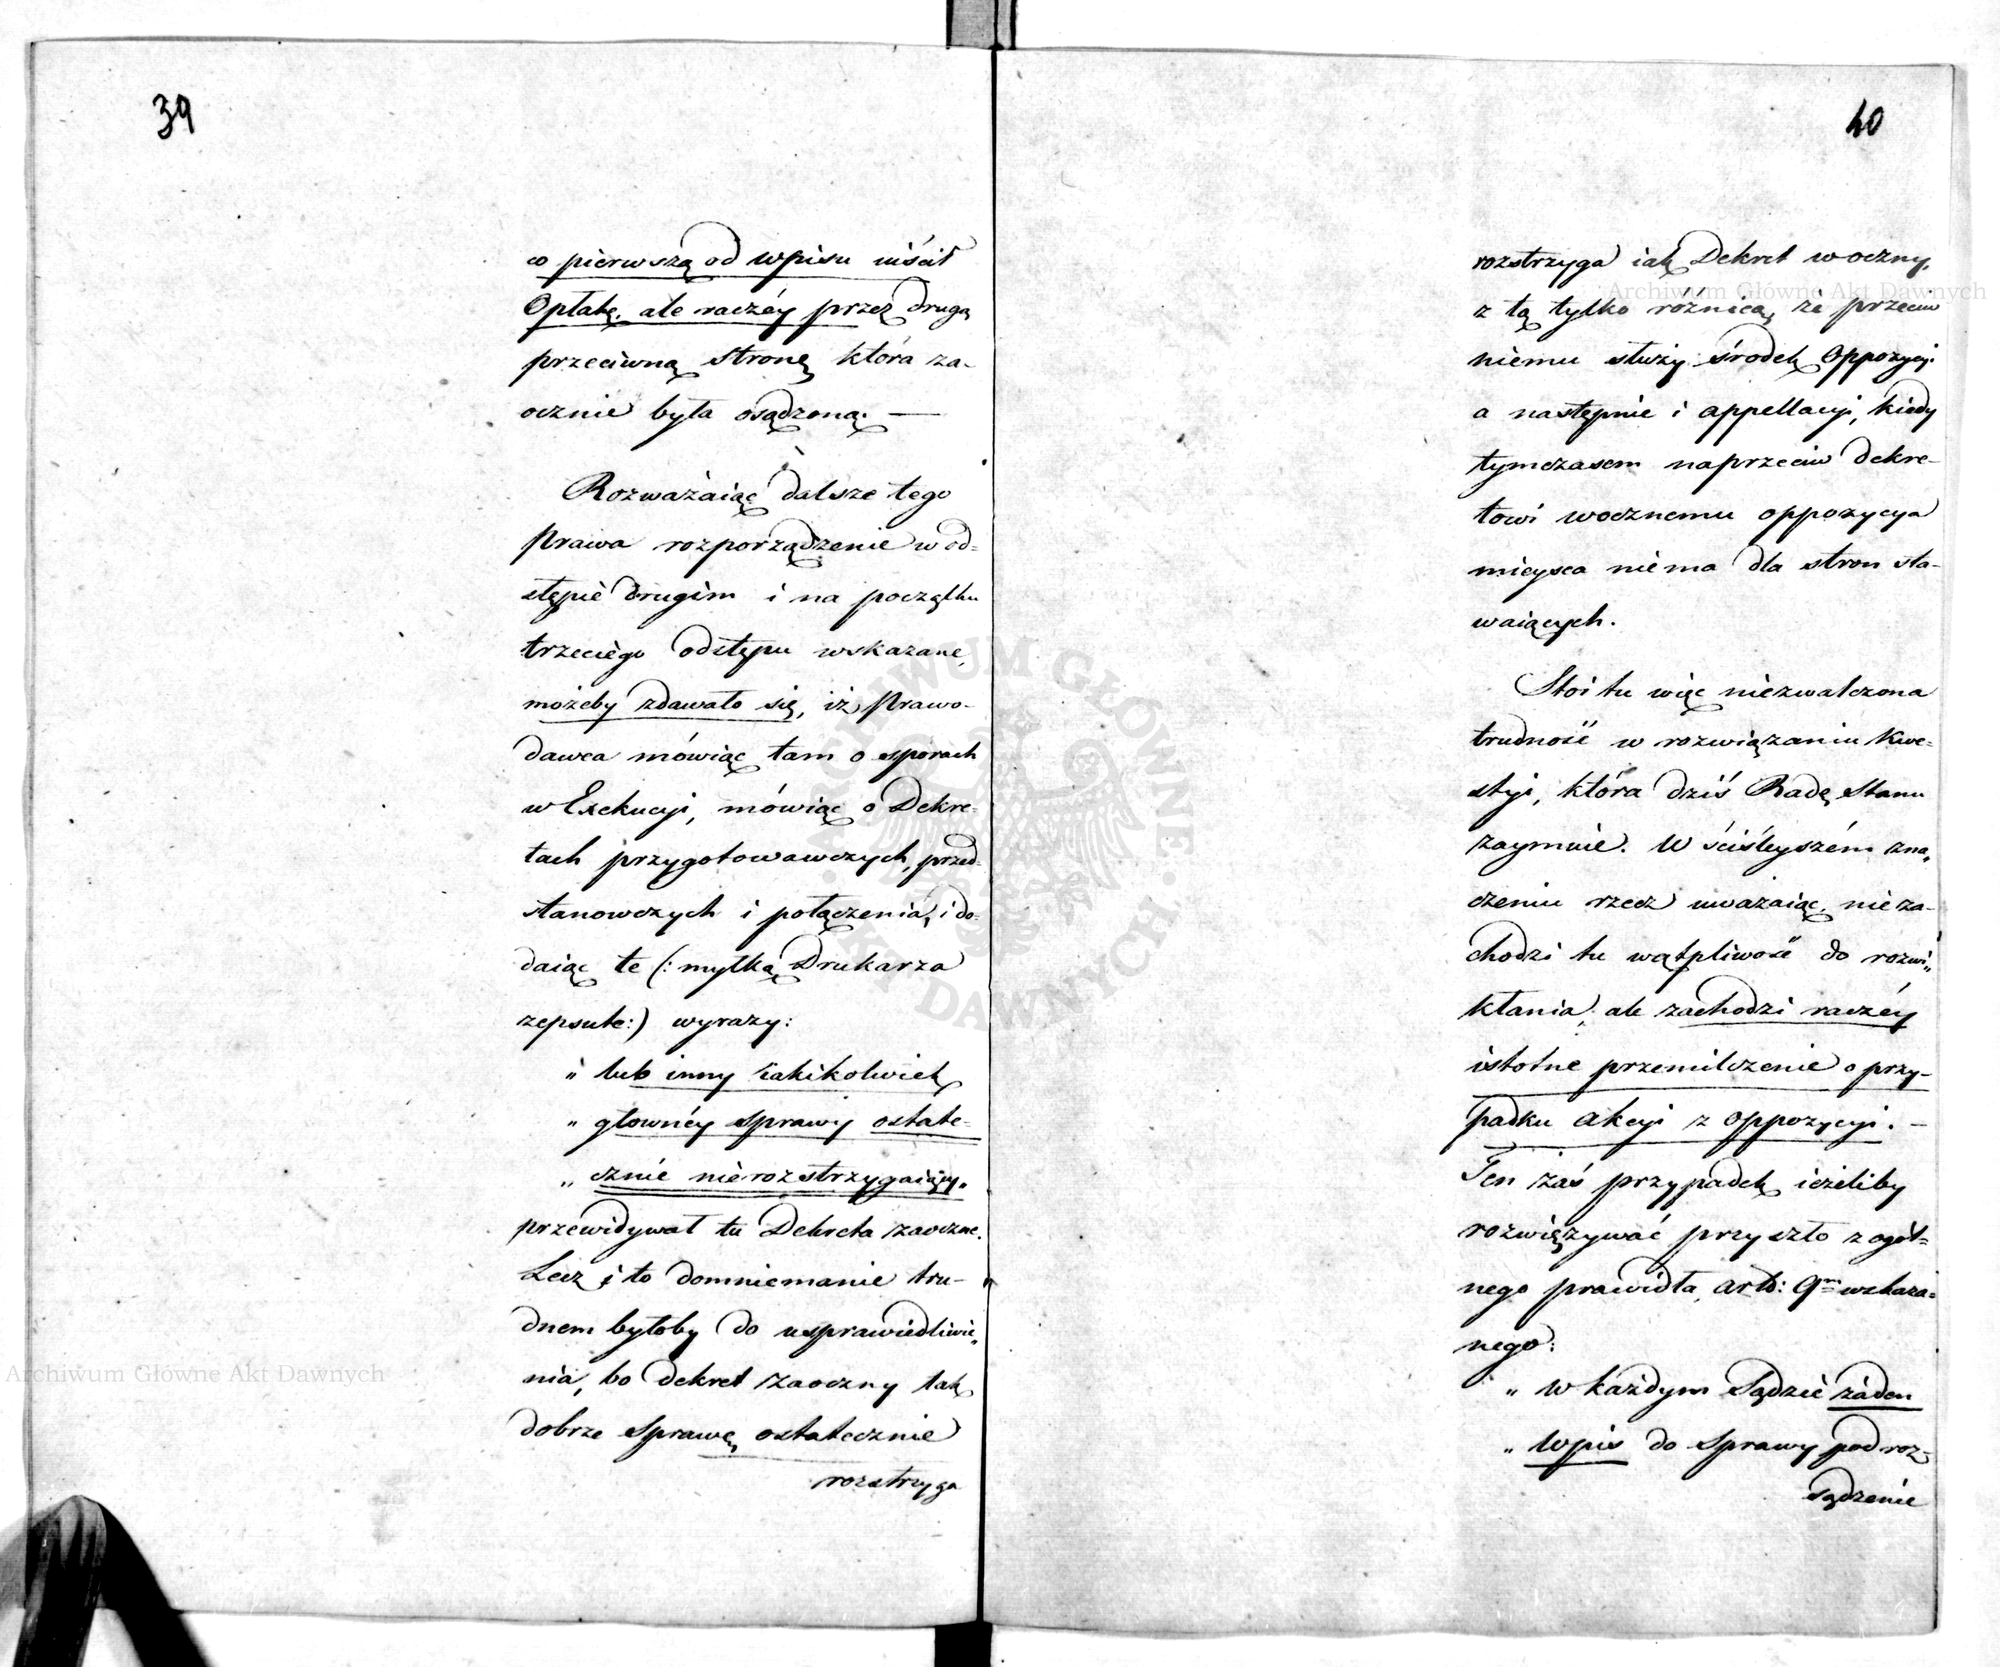 39
co pierwszą od wpisu uiścił
Opłatę, ale raczéy przez drugą
przeciwną stronę która za-
ocznie była osądzoną. —
Rozważaiąc dalsze tego
Prawa rozporządzenie w od=
stępie drugim i na początku
trzeciego odstępu wskazane,
możeby zdawało się, iż Prawo-
dawca mówiąc tam o sporach
w Exekucyi, mówiąc o Dekre-
tach przygotowawczych, przed-
stanowczych i połączenia, i do-
daiąc te (: myłką Drukarza
zepsute:) wyrazy:
„ lub inny iakikolwiek
„ głownéy sprawy ostate-
„ cznie nierozstrzygaiący„
przewidywał tu Dekreta zaoczne.
Lecz i to domniemanie tru-
dnem byłoby do usprawiedliwie„
nia, bo dekret zaoczny tak
dobrze sprawę ostatecznie
rozstrzyga
40
rozstrzyga iak Dekret w oczny,
z tą tylko róznicą, że przeciw
niemu służy środek Oppozycyi
a następnie i appellacyi, kiedy
tymczasem naprzeciw dekre-
towi wocznemu oppozycya
mieysca niema dla stron sta-
waiących.
Stoi tu więc niezwalczona
trudność w rozwiązaniu Kwe-
styi, która dziś Radę Stanu
zaymuie. W ściśleyszém zna„
czeniu rzecz uważaiąc, nie za-
chodzi tu wątpliwość do rozwi„
kłania, ale zachodzi raczéy
istotne przemilczenie o przy-
padku akcyi z oppozycyi. —
Ten zaś przypadek ieżeliby
rozwięzywać przyszło z ogól=
nego prawidła, art: 9m wskaza=
nego:
„ w każdym Sądzie żaden
„ wpis do sprawy pod roz-
sądzenie
Archiwum Główne Akt Dawnych
Archiwum Główne Akt Dawnych
ARCHIWUM GŁÓWNE AKT DAWNYCH